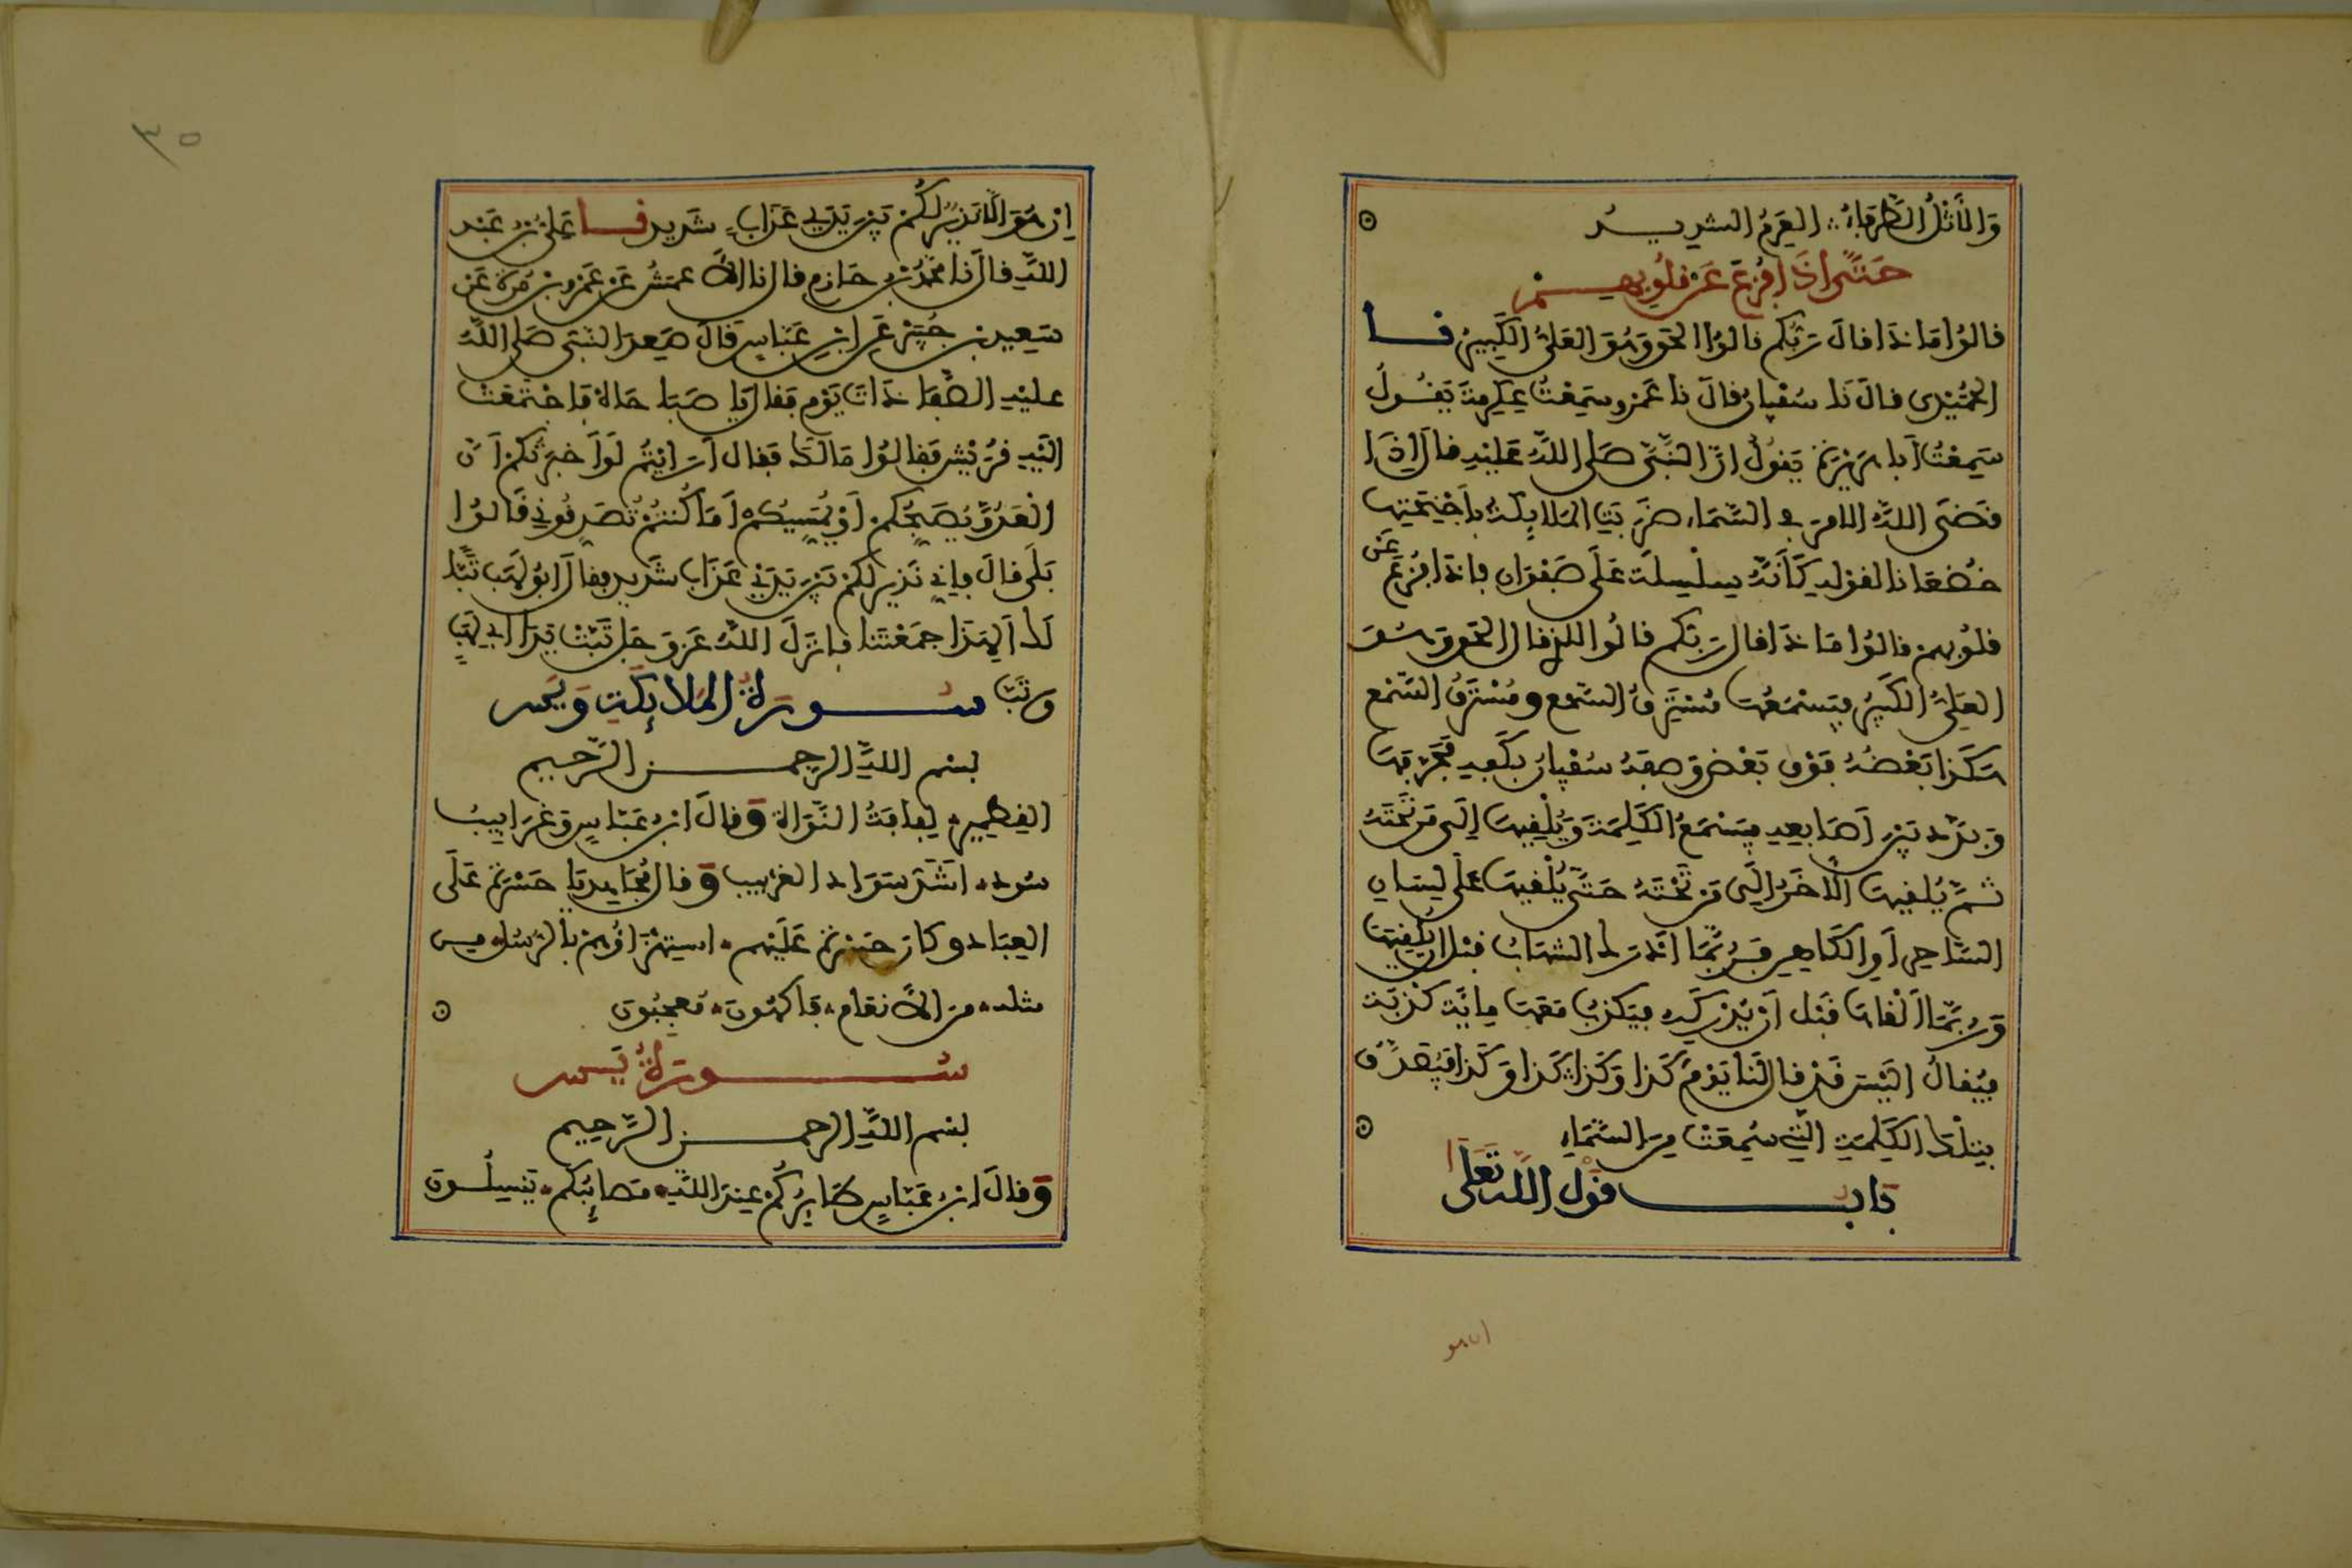 وَالأَثْلُ الطَّرْفَاءُ. العَرِمُ الشديدُ
حَتَّى إِذَا فُزِّعَ عَن قُلُوبِهِمْ
قالُوا مَاذَا قالَ رَبُّكم قالُوا الحَقَّ وَهُوَ العَلِىُّ الكَبِيرُ نــا
الحُمَيْدِى قالَ نَا سُفْيانُ قالَ نا عَمْرو سَمِعْتُ عِكرِمَةَ يَقُولُ
سَمِعْتُ أبا هُرَيْرَةَ يَقولُ إنَّ النَّبِىَّ صَلى اللهُ عَلَيْهِ قالَ إذَا
قَضَى اللَّهُ الامرَ فى السَّمَاءِ ضَرَبَتِ المَلايِكَةُ بأَجْنِحَتِهَا
خُضْعَانا لقوْلِهِ كَأَنَّهُ سِلْسِلَةٌ عَلَى صَفْوَانٍ فإذَا فُزِّعَ عَن
قلُوبِهِمْ قالوُا مَاذَا قالَ رَبُّكم قالُوا لِلَّذِى قال الحَقَّ وَهُوَ
العَلِىُّ الكَبِيرُ فيَسْمَعُهَا مُسْتَرِقُ السَّمْعِ وَمُسْتَرِقُ السَّمْعِ
هَكَذا بَعْضُهُ فَوْقَ بَعْضٍ وَصفَهُ سُفْيانُ بكَفِهِ فَحَرَفَهَا
وَبدَّدَ بَيْنَ أَصَابِعِهِ فيَسْمَعُ الكَلِمَةَ وَيُلْقِيهَا إلَى مَنْ تَحْتَهُ
ثُمَّ يُلْقِيهَا الآخَرُ إلَى مَنْ تَحْتَهُ حَتَّى يُلْقِيهَا عَلَى لِسَانِ
السَّاحِرِ أَوِ الكَاهِنِ فرُبَّمَا أدْرَكَ الشهَابُ قبْلَ أن يُلْقِيَهَا
وَرُبَّمَا أَلْقَاهَا قَبْلَ أَنْ يُدْرِكَهُ فيَكذِبُ مَعَهَا مِايَةَ كَذْبَةٍ
فيُقالُ أَلَيْسَ قَدْ قالَ لَنَا يَوْمَ كَذا وَكَذا كَذا وَكَذا فيُصَدَّقُ
بتِلْكَ الكَلِمَةِ الَّتِى سُمِعَتْ مِنَ السَّمَاءِ
بَابــ قوْل اللَّهِ تَعَالَى
ان هو
٣٥
إنْ هُوَ إلَّا نَذِيرٌ لَكُمْ بَيْنَ يَدَىْ عَذَابٍ شَدِيدٍ نــا عَلِىُّ بْنُ عَبْدِ
اللَّهِ قالَ نَا مُحَمَّدُ بْنُ خازِمٍ قال نا الأَعمَشُ عَنْ عَمْرِو بْنِ مُرَّةَ عَنْ
سَعِيدِ بْنِ جُبَيْرٍ عَنِ ابْنِ عَبَّاسٍ قالَ صَعِدَ النَّبِىُّ صَلى اللَّهُ
عليْهِ الصَّفَا ذَاتَ يَوْمٍ فَقالَ يَا صَبَاحَاهْ فاجْتَمَعَتْ
إلَيْهِ قُرَيْشٌ فقالُوا مَا لَكَ فقال أرَأيْتُمْ لَوْ أَخبَرْتُكُمْ أَنَّ
الْعَدُوَّ يُصَبِّحُكم أَوْ يُمَسِّيكُمْ أمَا كُنْتُمْ تُصَدِّقُونِى قَالوُا
بَلَى قالَ فإنِّى نَذِيرٌ لَكُمْ بَيْنَ يَدَىْ عَذَابٍ شَدِيدٍ فقالَ أبُو لَهَبٍ تَبّا
لَكَ أَلِهَذَا جمَعْتَنا فأنْزَلَ اللَّهُ عَزَّ وَجَلَّ تَبَّتْ يَدَا أبِى لَهَبٍ
وَتَبَّ ســورَةُ المَلايِكَةِ وَيَس
بسْمِ اللَّهِ الرحمــن الرَّحِيمِ
القِطْمِير. لِفافَةُ النَّوَاةِ وَقالَ ابْنُ عَبَّاسٍ وَغَرَابِيبُ
سُود. أشَدّ سَوَادِ الغرْبِيبِ وَقالَ مُجَاهِد يَا حَسْرَةً عَلَى
العِبَادِ وكانَ حَسْرَةً عَلَيْهِمْ. استِهْزَاؤُهُمْ بالرُّسُل. مِن
مثله. مِنَ الأَنعَامِ. فاكهُونَ. مُعجَبُونَ
ســورَةُ يَس
بسْمِ اللَّهِ الرحمــن الرَّحِيمِ
وَقالَ ابْنُ عَبَّاسٍ طَايِرُكُمْ عِنْدَ اللَّهِ. مَصائِبُكُمْ. يَنْسِلُونَ